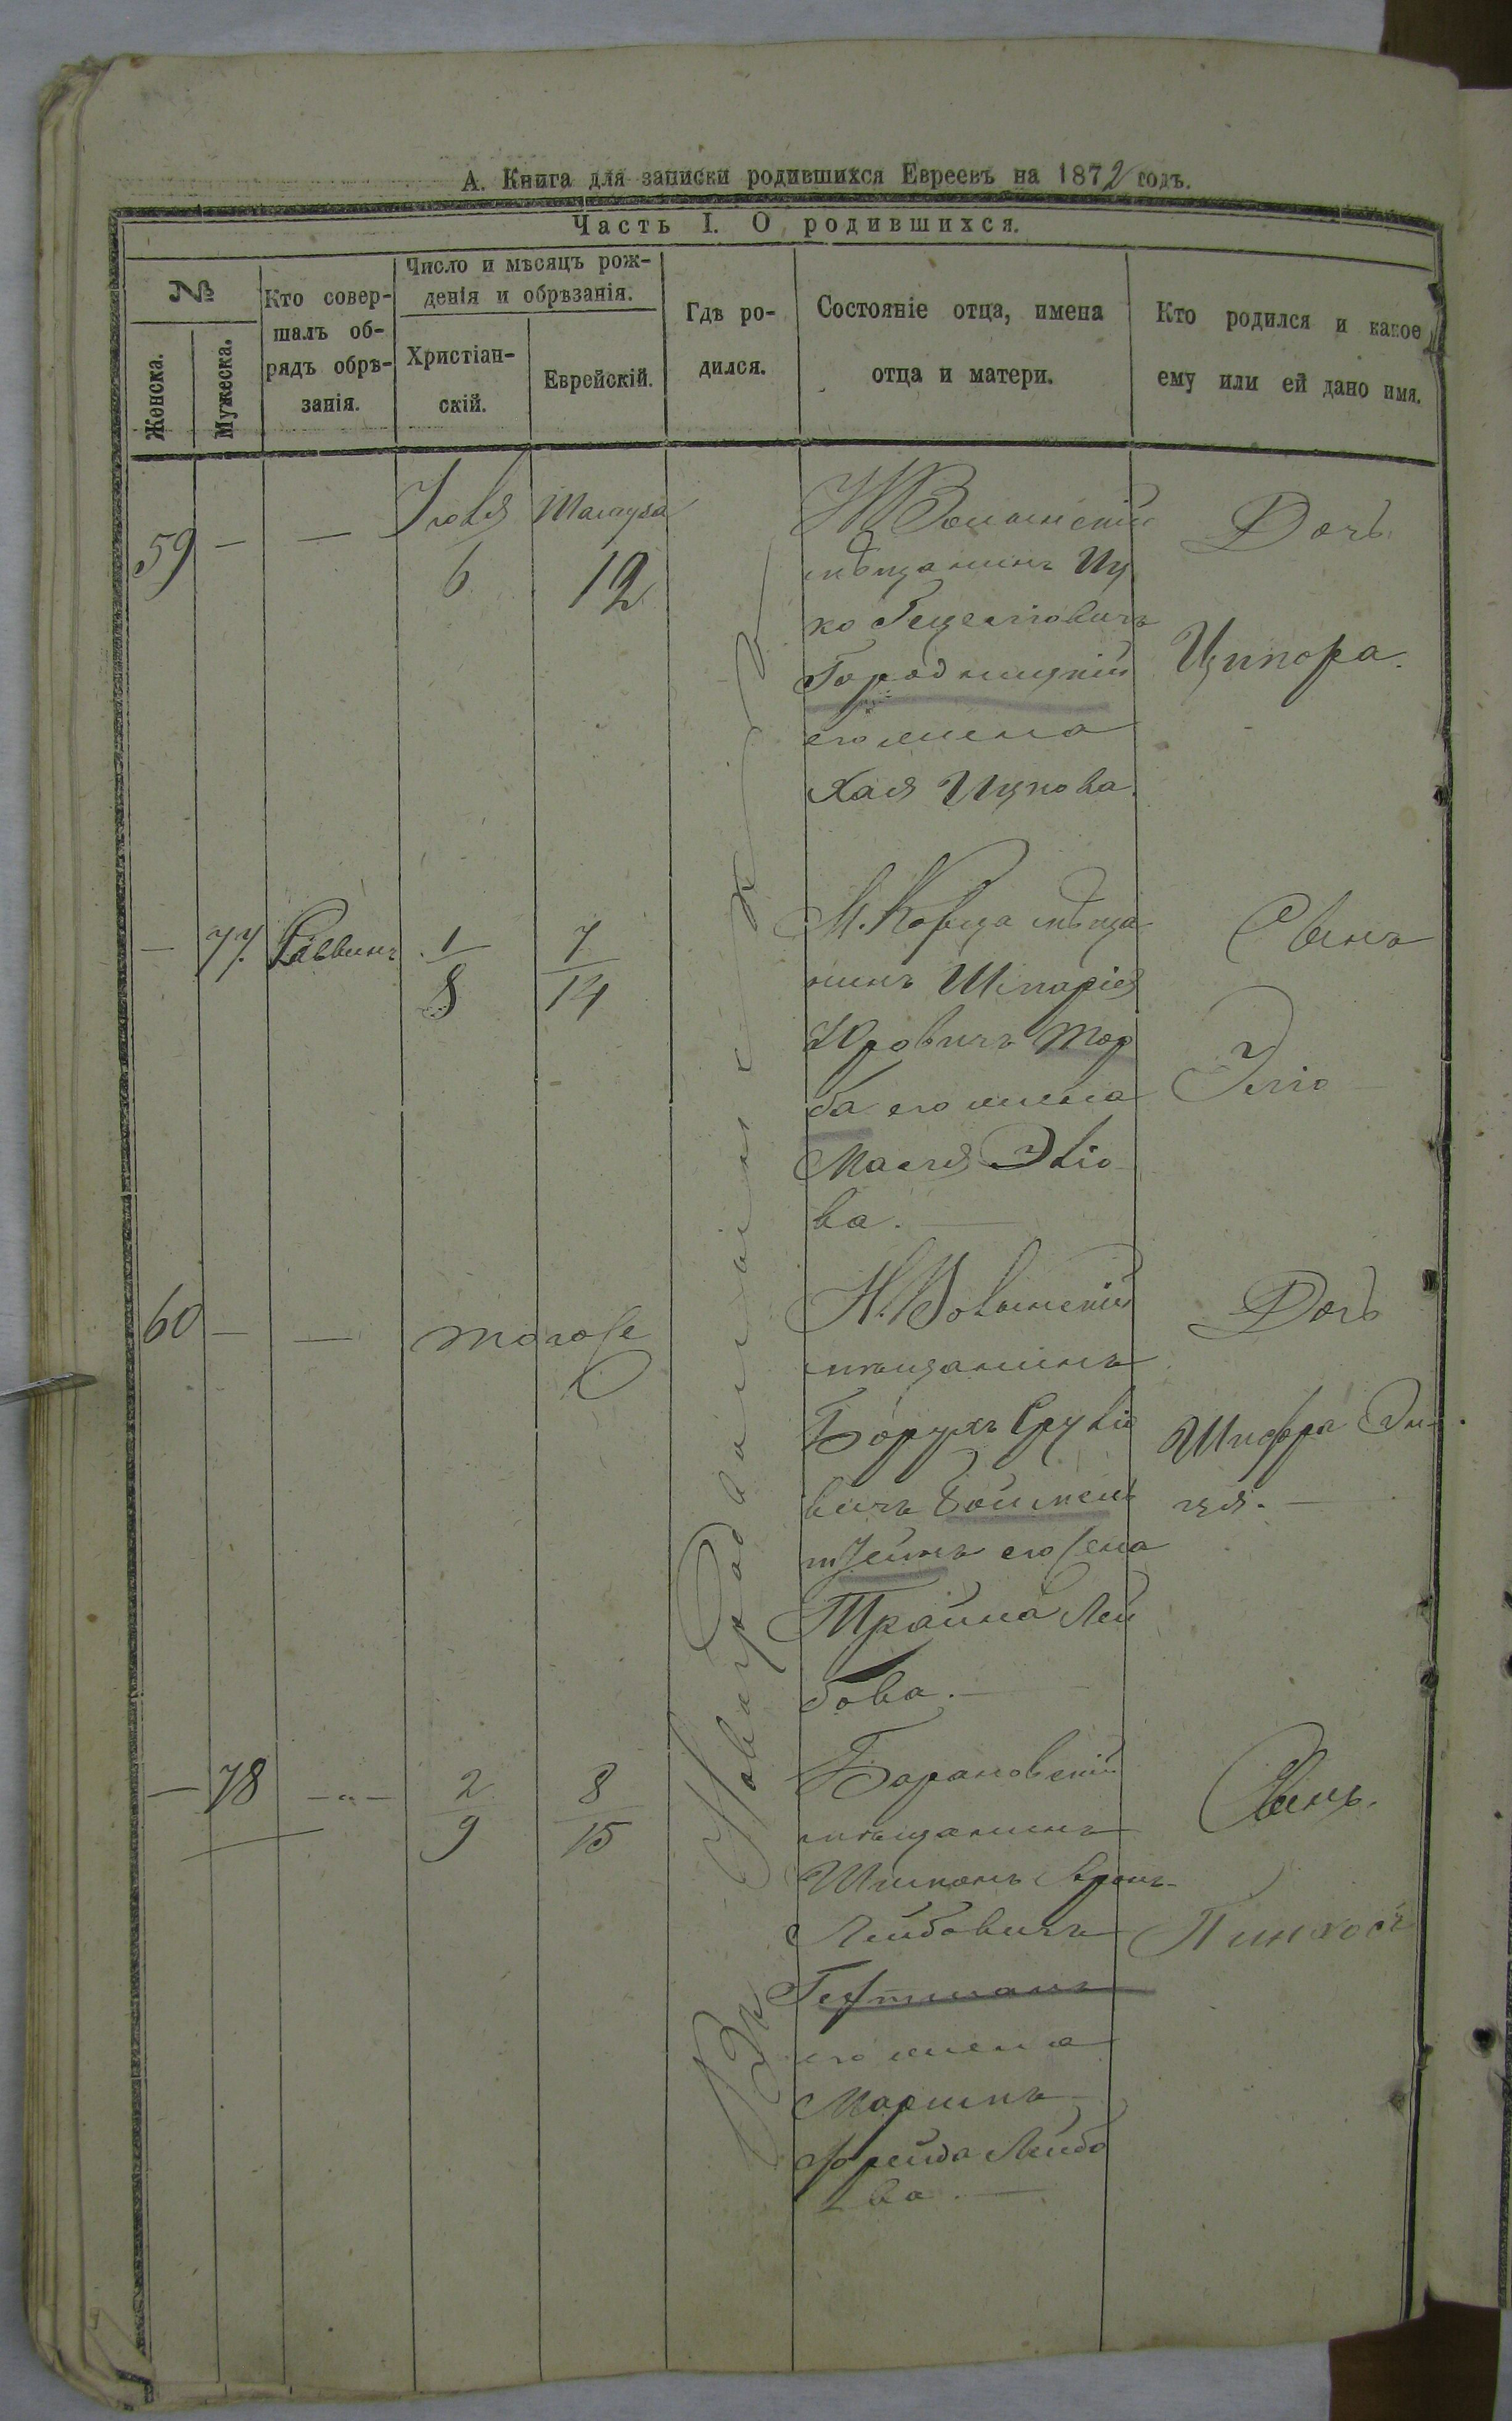 А. Книга для записки родившихся Евреевъ на 1872 годъ.
Часть I. О родившихся.
№
Женска.
Мужеска.
Кто совер-
шалъ об-
рядъ обрѣ-
занія.
Число и мѣсяцъ рож-
денія и обрѣзанія.
Христіан-
скій.
Еврейскій.
Гдѣ ро-
дился.
Состояніе отца, имена
отца и матери.
Кто родился и какое
ему или ей дано имя.
59 — —
Іюля
6
12
Н Волынскій
мѣщанинъ Иц
ко
Городницкій
его жена
Хая Ицкова.
Дочь
Ципора.
— 77. Раввинъ
1
8
7
14
М. Корца мѣща
нинъ Шмарія
Юровичъ Тор
ба его жена
Эліо
ва. —
Сынъ
Эліо —
60 — —
тогоже
Н. Волынскій
мѣщанинъ
Борухъ Сруліо
вичъ
его жена
Трайна Лей
бова. —
Дочь
Шифра
— 78 —„—
2
9
8
15
Барановскій
мѣщанинъ
Шимонъ Аронъ
Лейбовичъ
его жена
Фрейда Лейбо
ва. —
Сынъ.
Пинхосъ
Въ